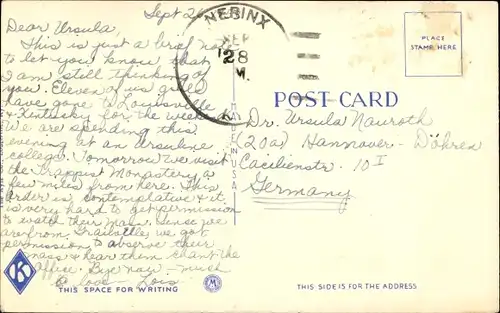 Sept 26
Dear Ursula,
This is just a brief note
to let you know that
I am still thinking of
you. Eleven of us girls
have gone to Louisville
& Kentucky for the weekend
We are spending this
evening at an Ursuline
college. Tomorrow we visit
the Trappist Monastery a
few miles from here. This
order is contemplative & it
is very hard to get permission
to watch their Mass. Since we
are from Grailville we got
permission to observe their
mass & hear them chant the
office. Bye now - much
love - Lois
THIS SPACE FOR WRITING
K
NERINX
SEP
28
M.
KY.
MADE IN U.S.A.
M
PLACE
STAMP HERE
POST CARD
Dr. Ursula Nauroth
(20a) Hannover - Döhren
Cäcilienstr. 10 I
Germany
THIS SIDE IS FOR THE ADDRESS